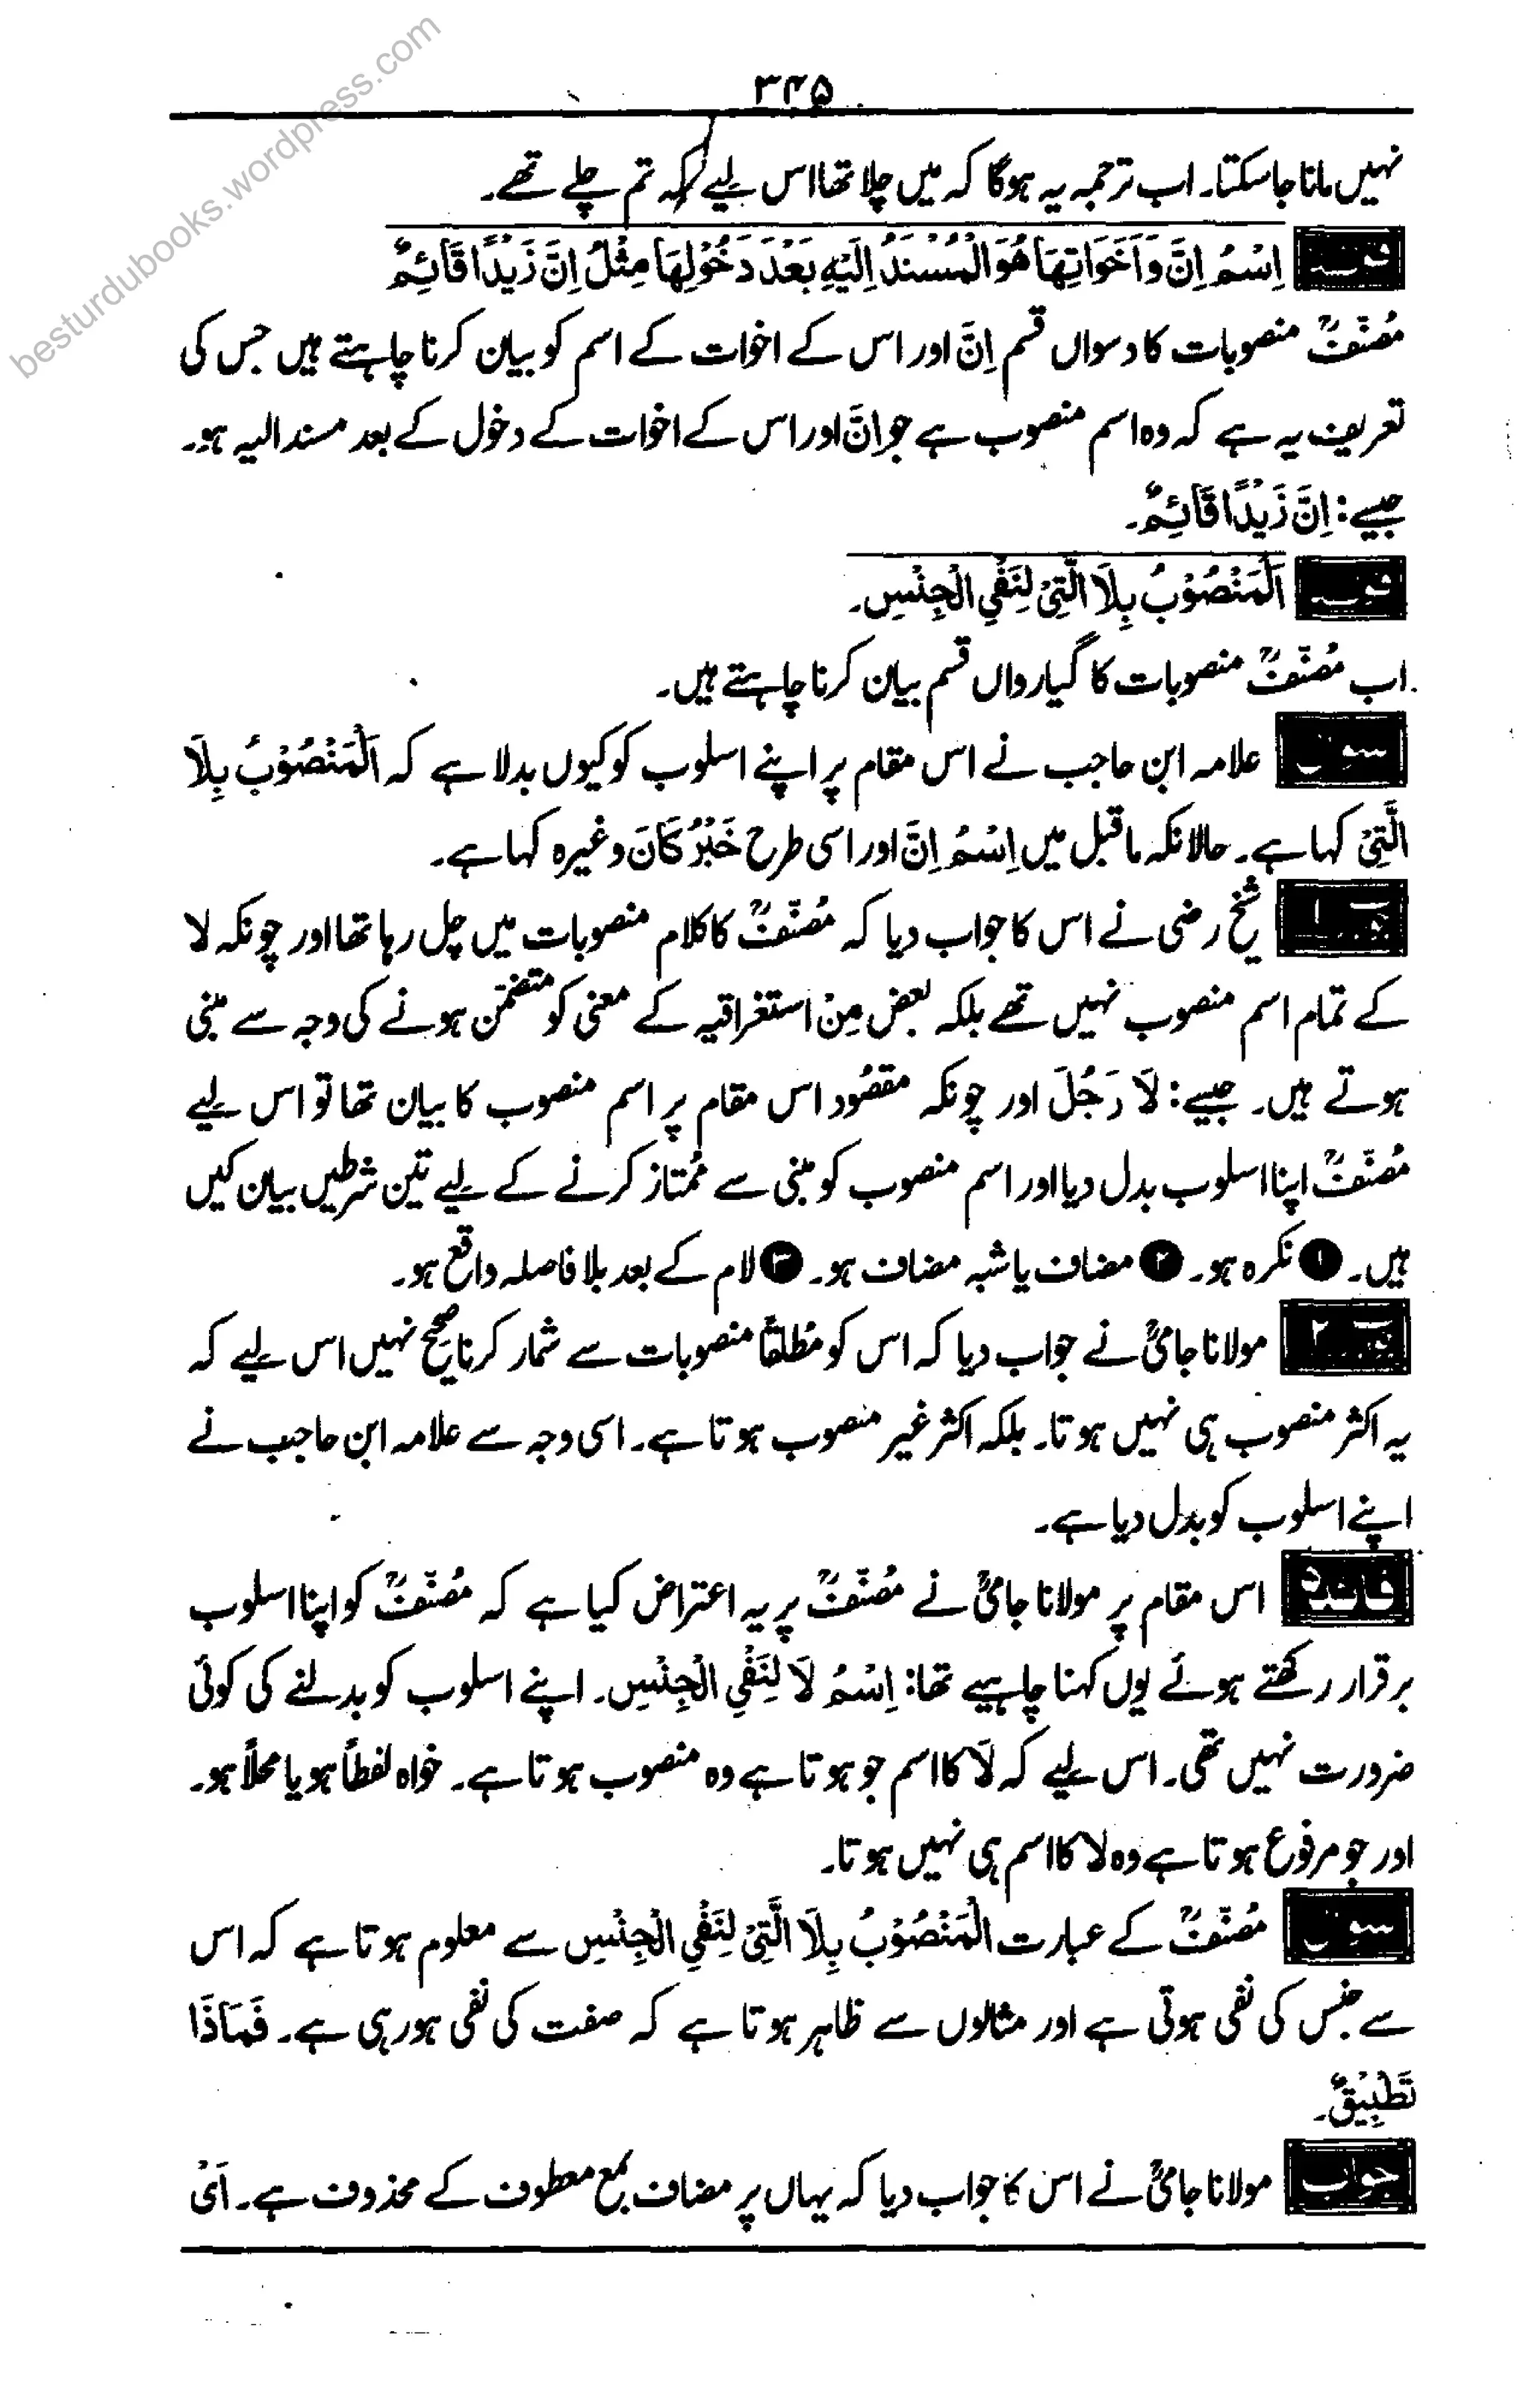 ۳۴۵
نہیں مانا جا سکتا۔ اب ترجمہ یہ ہوگا کہ میں چلا تھا اس لیے کہ تم چلے تھے۔
قولہ اِسْمُ اِنَّ وَاَخَوَاتِهَا هُوَ الْمُسْنَدُ اِلَيْهِ بَعْدَ دَخُوْلِهَا مِثْلُ اِنَّ زَيْدًا قَائِمٌ
مُصنّفؒ منصوبات کا دسواں قسم اِنَّ اور اس کے اخوات کے اسم کو بیان کرنا چاہتے ہیں جس کی
تعریف یہ ہے کہ وہ اسم منصوب ہے جو اِنَّ اور اس کے اخوات کے دخول کے بعد مسند الیہ ہو۔
جیسے: اِنَّ زَيْدًا قَائِمٌ۔
قولہ اَلْمَنْصُوْبُ بِلَا الَّتِيْ لِنَفْيِ الْجِنْسِ۔
اب مُصنّفؒ منصوبات کا گیارواں قسم بیان کرنا چاہتے ہیں۔
سوال علامہ ابن حاجب نے اس مقام پر اپنے اسلوب کو کیوں بدلا ہے کہ اَلْمَنْصُوْبُ بِلَا
الَّتِيْ کہا ہے۔ حالانکہ ماقبل میں اِسْمُ اِنَّ اور اسی طرح خَبْرُ كَانَ وغیرہ کہا ہے۔
جواب ۱ شیخ رضی نے اس کا جواب دیا کہ مُصنّفؒ کا کلام منصوبات میں چل رہا تھا اور چونکہ لا
کے تمام اسم منصوب نہیں تھے بلکہ بعض مِنْ استغراقیہ کے معنی کو متضمّن ہونے کی وجہ سے مبنی
ہوتے ہیں۔ جیسے: لَا رَجُلَ اور چونکہ مقصُود اس مقام پر اسم منصوب کا بیان تھا تو اس لیے
مُصنّفؒ اپنا اسلوب بدل دیا اور اسم منصوب کو مبنی سے مُمتاز کرنے کے لیے تین شرطیں بیان کیں
ہیں۔ ❶ نکرہ ہو۔ ❷ مضاف یا شبہ مضاف ہو۔ ❸ لام کے بعد بلا فاصلہ واقع ہو۔
جواب ۲ مولانا جامیؒ نے جواب دیا کہ اس کو مُطلقاً منصوبات سے شمار کرنا صحیح نہیں اس لیے کہ
یہ اکثر منصوب ہی نہیں ہوتا۔ بلکہ اکثر غیر منصوب ہوتا ہے۔ اسی وجہ سے علامہ ابن حاجب نے
اپنے اسلوب کو بدل دیا ہے۔
فائدہ اس مقام پر مولانا جامیؒ نے مُصنّفؒ پر یہ اعتراض کیا ہے کہ مُصنّفؒ کو اپنا اسلوب
برقرار رکھتے ہوئے یوں کہنا چاہیے تھا: اِسْمُ لَا لِنَفْيِ الْجِنْسِ۔ اپنے اسلوب کو بدلنے کی کوئی
ضرورت نہیں تھی۔ اس لیے کہ لَا کا اسم جو ہوتا ہے وہ منصوب ہوتا ہے۔ خواہ لفظاً ہو یا محلاً ہو۔
اور جو مرفوع ہوتا ہے وہ لا کا اسم ہی نہیں ہوتا۔
سوال مُصنّفؒ کے عبارت الْمَنْصُوْبُ بِلَا الَّتِيْ لِنَفْيِ الْجِنْسِ سے معلوم ہوتا ہے کہ اس
سے جنس کی نفی ہوتی ہے اور مثالوں سے ظاہر ہوتا ہے کہ صفت کی نفی ہو رہی ہے۔ فَمَاذَا
تَطْبِيْقٌ۔
جواب مولانا جامیؒ نے اس کا جواب دیا کہ یہاں پر مضاف بمع معطوف کے محذوف ہے۔ اَىْ
besturdubooks.wordpress.com